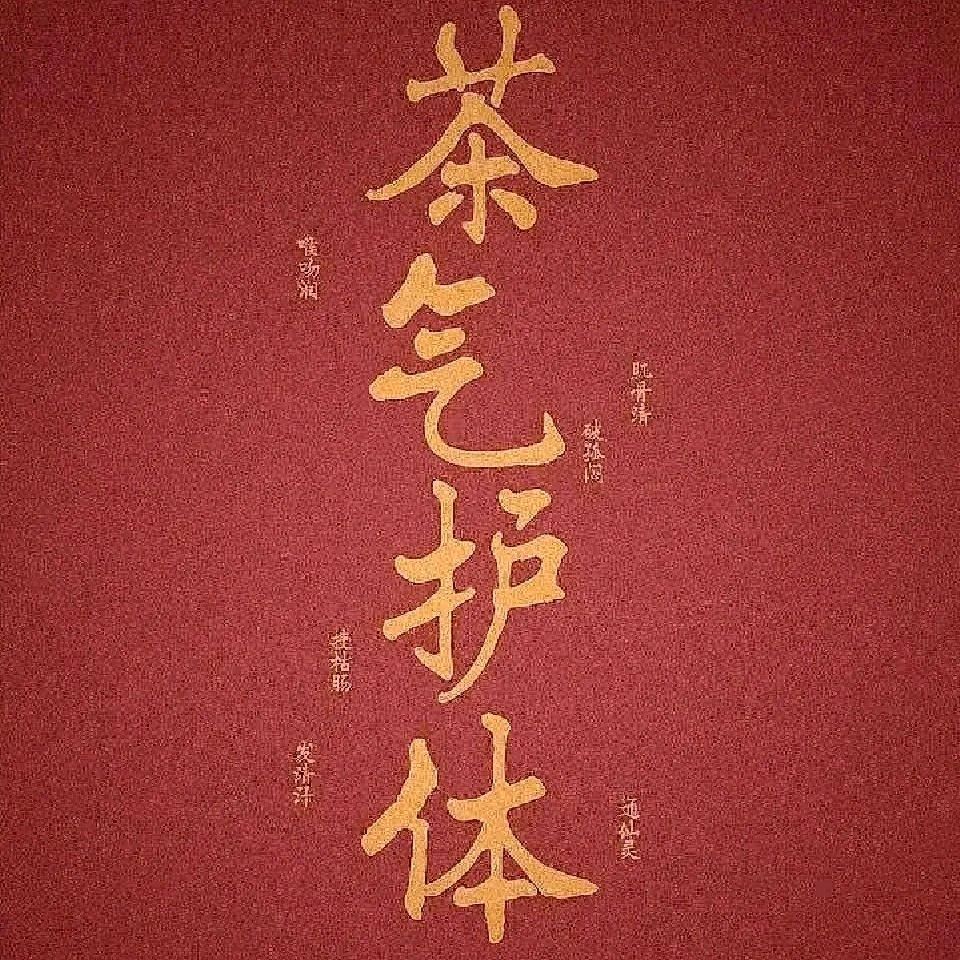 茶气护体
喉吻润
肌骨清
破孤闷
搜枯肠
发清汗
通仙灵